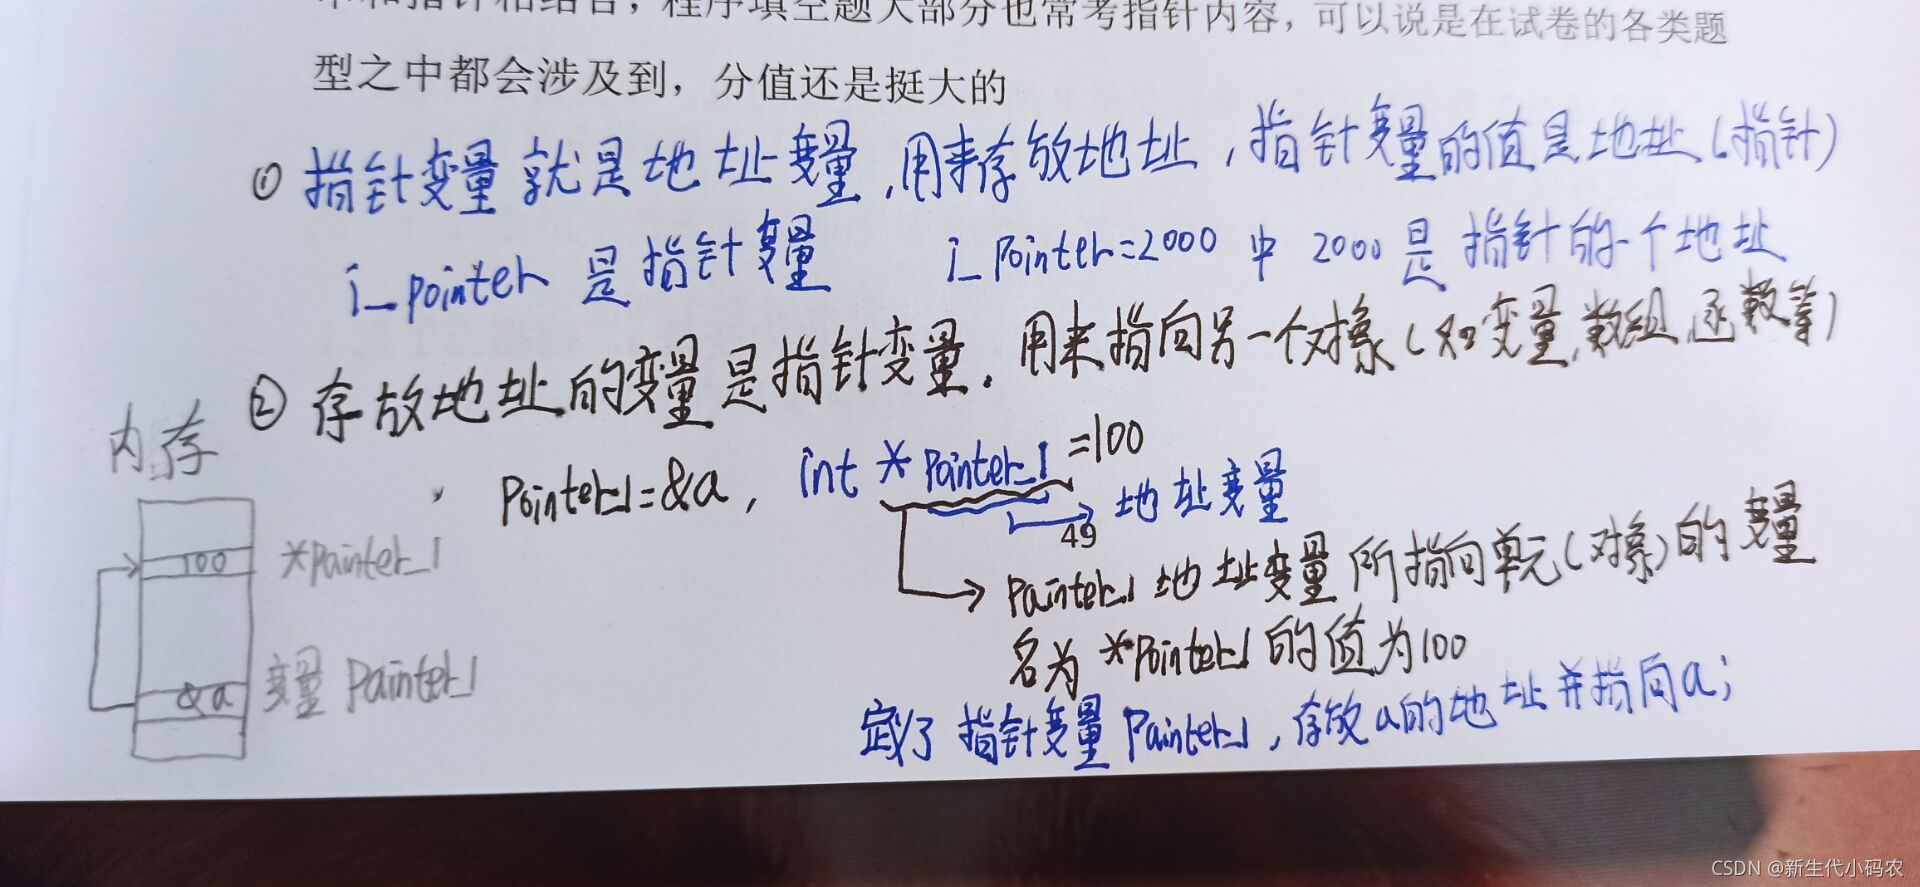 和指针相结合，程序填空题大部分也常考指针内容，可以说是在试卷的各类题
型之中都会涉及到，分值还是挺大的
① 指针变量就是地址变量，用来存放地址，指针变量的值是地址(指针)
i_pointer 是指针变量 i_pointer=2000 中 2000 是指针的一个地址
② 存放地址的变量是指针变量，用来指向另一个对象(如变量,数组,函数等)
内存
Pointer_1=&a, int *Pointer_1=100
地址变量
49
100 *Pointer_1
Pointer_1 地址变量所指向单元(对象)的变量
名为 *Pointer_1 的值为100
&a 变量 Pointer_1
定义了指针变量 Pointer_1, 存放a的地址并指向a;
CSDN @新生代小码农